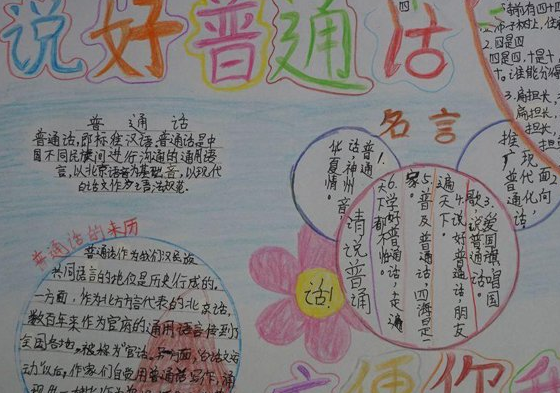 说好普通话
四
2.四是四
四是四,十是十
3.扁担长
扁担长,
普通话
普通话,即标准汉语,普通话是中
国不同民族间进行沟通的通用语
言,以北京语音为基础音,以现代
白话文作为语法规范。
名言
1.普通
话,神州音
华夏情。
2.面向
现代化,
推广普
3.爱国强唱国
歌,说普通话。
4.说好普通话,朋友
遍天下。
5.普及普通话,四海是一
家。
6.学好普通话,走遍
天下都不怕。
请说普通
话!
普通话的来历
普通话作为我们汉民族
共同语言的地位是历史形成的。
一方面,作为北方方言代表的北京话,
数百年来作为官府的通用语言接到了
全国各地,被称为"官话。另一方面,白话文运
动"以后,作家们自觉用普通话写作,涌
方便你我